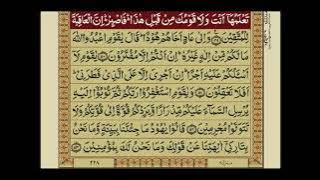 تَعْلَمُهَآ اَنْتَ وَلَا قَوْمُكَ مِنْ قَبْلِ هٰذَا فَاصْبِرْ اِنَّ الْعَاقِبَةَ
لِلْمُتَّقِيْنَ وَاِلٰى عَادٍ اَخَاهُمْ هُوْدًا قَالَ يٰقَوْمِ اعْبُدُوا اللّٰهَ
مَا لَكُمْ مِّنْ اِلٰهٍ غَيْرُهٗ اِنْ اَنْتُمْ اِلَّا مُفْتَرُوْنَ يٰقَوْمِ لَآ
اَسْـَٔلُكُمْ عَلَيْهِ اَجْرًا اِنْ اَجْرِيَ اِلَّا عَلَى الَّذِيْ فَطَرَنِيْ
اَفَلَا تَعْقِلُوْنَ وَيٰقَوْمِ اسْتَغْفِرُوْا رَبَّكُمْ ثُمَّ تُوْبُوْٓا اِلَيْهِ
يُرْسِلِ السَّمَآءَ عَلَيْكُمْ مِّدْرَارًا وَّيَزِدْكُمْ قُوَّةً اِلٰى قُوَّتِكُمْ وَلَا
تَتَوَلَّوْا مُجْرِمِيْنَ قَالُوْا يٰهُوْدُ مَا جِئْتَنَا بِبَيِّنَةٍ وَّمَا نَحْنُ
بِتَارِكِيْٓ اٰلِهَتِنَا عَنْ قَوْلِكَ وَمَا نَحْنُ لَكَ بِمُؤْمِنِيْنَ